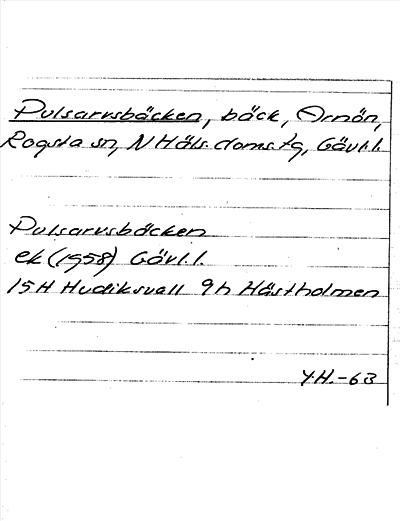 Pulsarvsbäcken, bäck, Arnön,
Rogsta sn, N Häls. doms.tg, Gävl.l.
Pulsarvsbäcken
ek (1958) Gävl.l.
15H Hudiksvall 9h Hästholmen
Y.H.-63